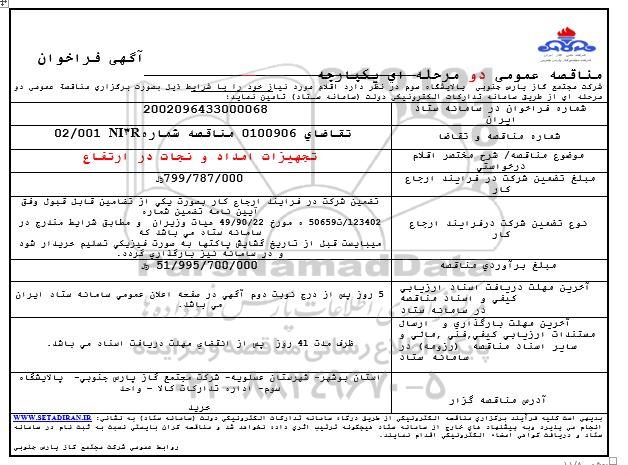 آگهی فراخوان
مناقصه عمومی دو مرحله ای یکپارچه
شرکت مجتمع گاز پارس جنوبی پالایشگاه سوم در نظر دارد اقلام مورد نیاز خود را با شرایط ذیل بصورت برگزاری مناقصة عمومی دو
مرحله ای از طریق سامانه تدارکات الکترونیکی دولت (سامانه ستاد) تامین نماید:
شماره فراخوان در سامانه ستاد
ایران
2002096433000068
شماره مناقصه و تقاضا
تقاضای 0100906 مناقصه شماره 02/001 NI*R
موضوع مناقصه/ شرح مختصر اقلام
درخواستی
تجهیزات امداد و نجات در ارتفاع
مبلغ تضمین شرکت در فرایند ارجاع
کار
799/787/000ریال
نوع تضمین شرکت درفرایند ارجاع
کار
تضمین شرکت در فرایند ارجاع کار بصورت یکی از تضامین قابل قبول وفق
آیین نامه تضمین شماره
123402/ت50659 ه مورخ 49/90/22 هیات وزیران و مطابق شرایط مندرج در
سامانه ستاد می باشد که
میبایست قبل از تاریخ گشایش پاکتها به صورت فیزیکی تسلیم خریدار شود
و در سامانه نیز بارگذاری گردد.
مبلغ برآوردی مناقصه
51/995/700/000 ریال
آخرین مهلت دریافت اسناد ارزیابی
کیفی و اسناد مناقصه
در سامانه ستاد
5 روز پس از درج نوبت دوم آگهی در صفحه اعلان عمومی سامانه ستاد ایران
می باشد.
آخرین مهلت بارگذاری و ارسال
مستندات ارزیابی کیفی,فنی ,مالی و
سایر اسناد مناقصه (رزومه) در
سامانه ستاد
ظرف مدت 41 روز پس از انقضای مهلت دریافت اسناد می باشد.
آدرس مناقصه گزار
استان بوشهر- شهرستان عسلویه- شرکت مجتمع گاز پارس جنوبی- پالایشگاه
سوم- اداره تدارکات کالا – واحد
خرید
بدیهی است کلیه فرآیند برگزاری مناقصه الکترونیکی از طریق درگاه سامانه تدارکات الکترونیکی دولت (سامانه ستاد) به نشانی: WWW.SETADIRAN.IR
انجام می پذیرد وبه پیشنهاد های خارج از سامانه ستاد هیچگونه ترتیب اثری داده نخواهد شد و مناقصه گران بایستی نسبت به ثبت نام در سامانه
ستاد و دریافت گواهی امضاء الکترونیکی اقدام نمایند.
روابط عمومی شرکت مجتمع گاز پارس جنوبی